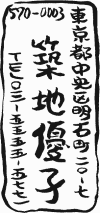 570-0003
東京都中央区明石町二〇-七
築地優子
TEL〇三-五五五五-五七七一